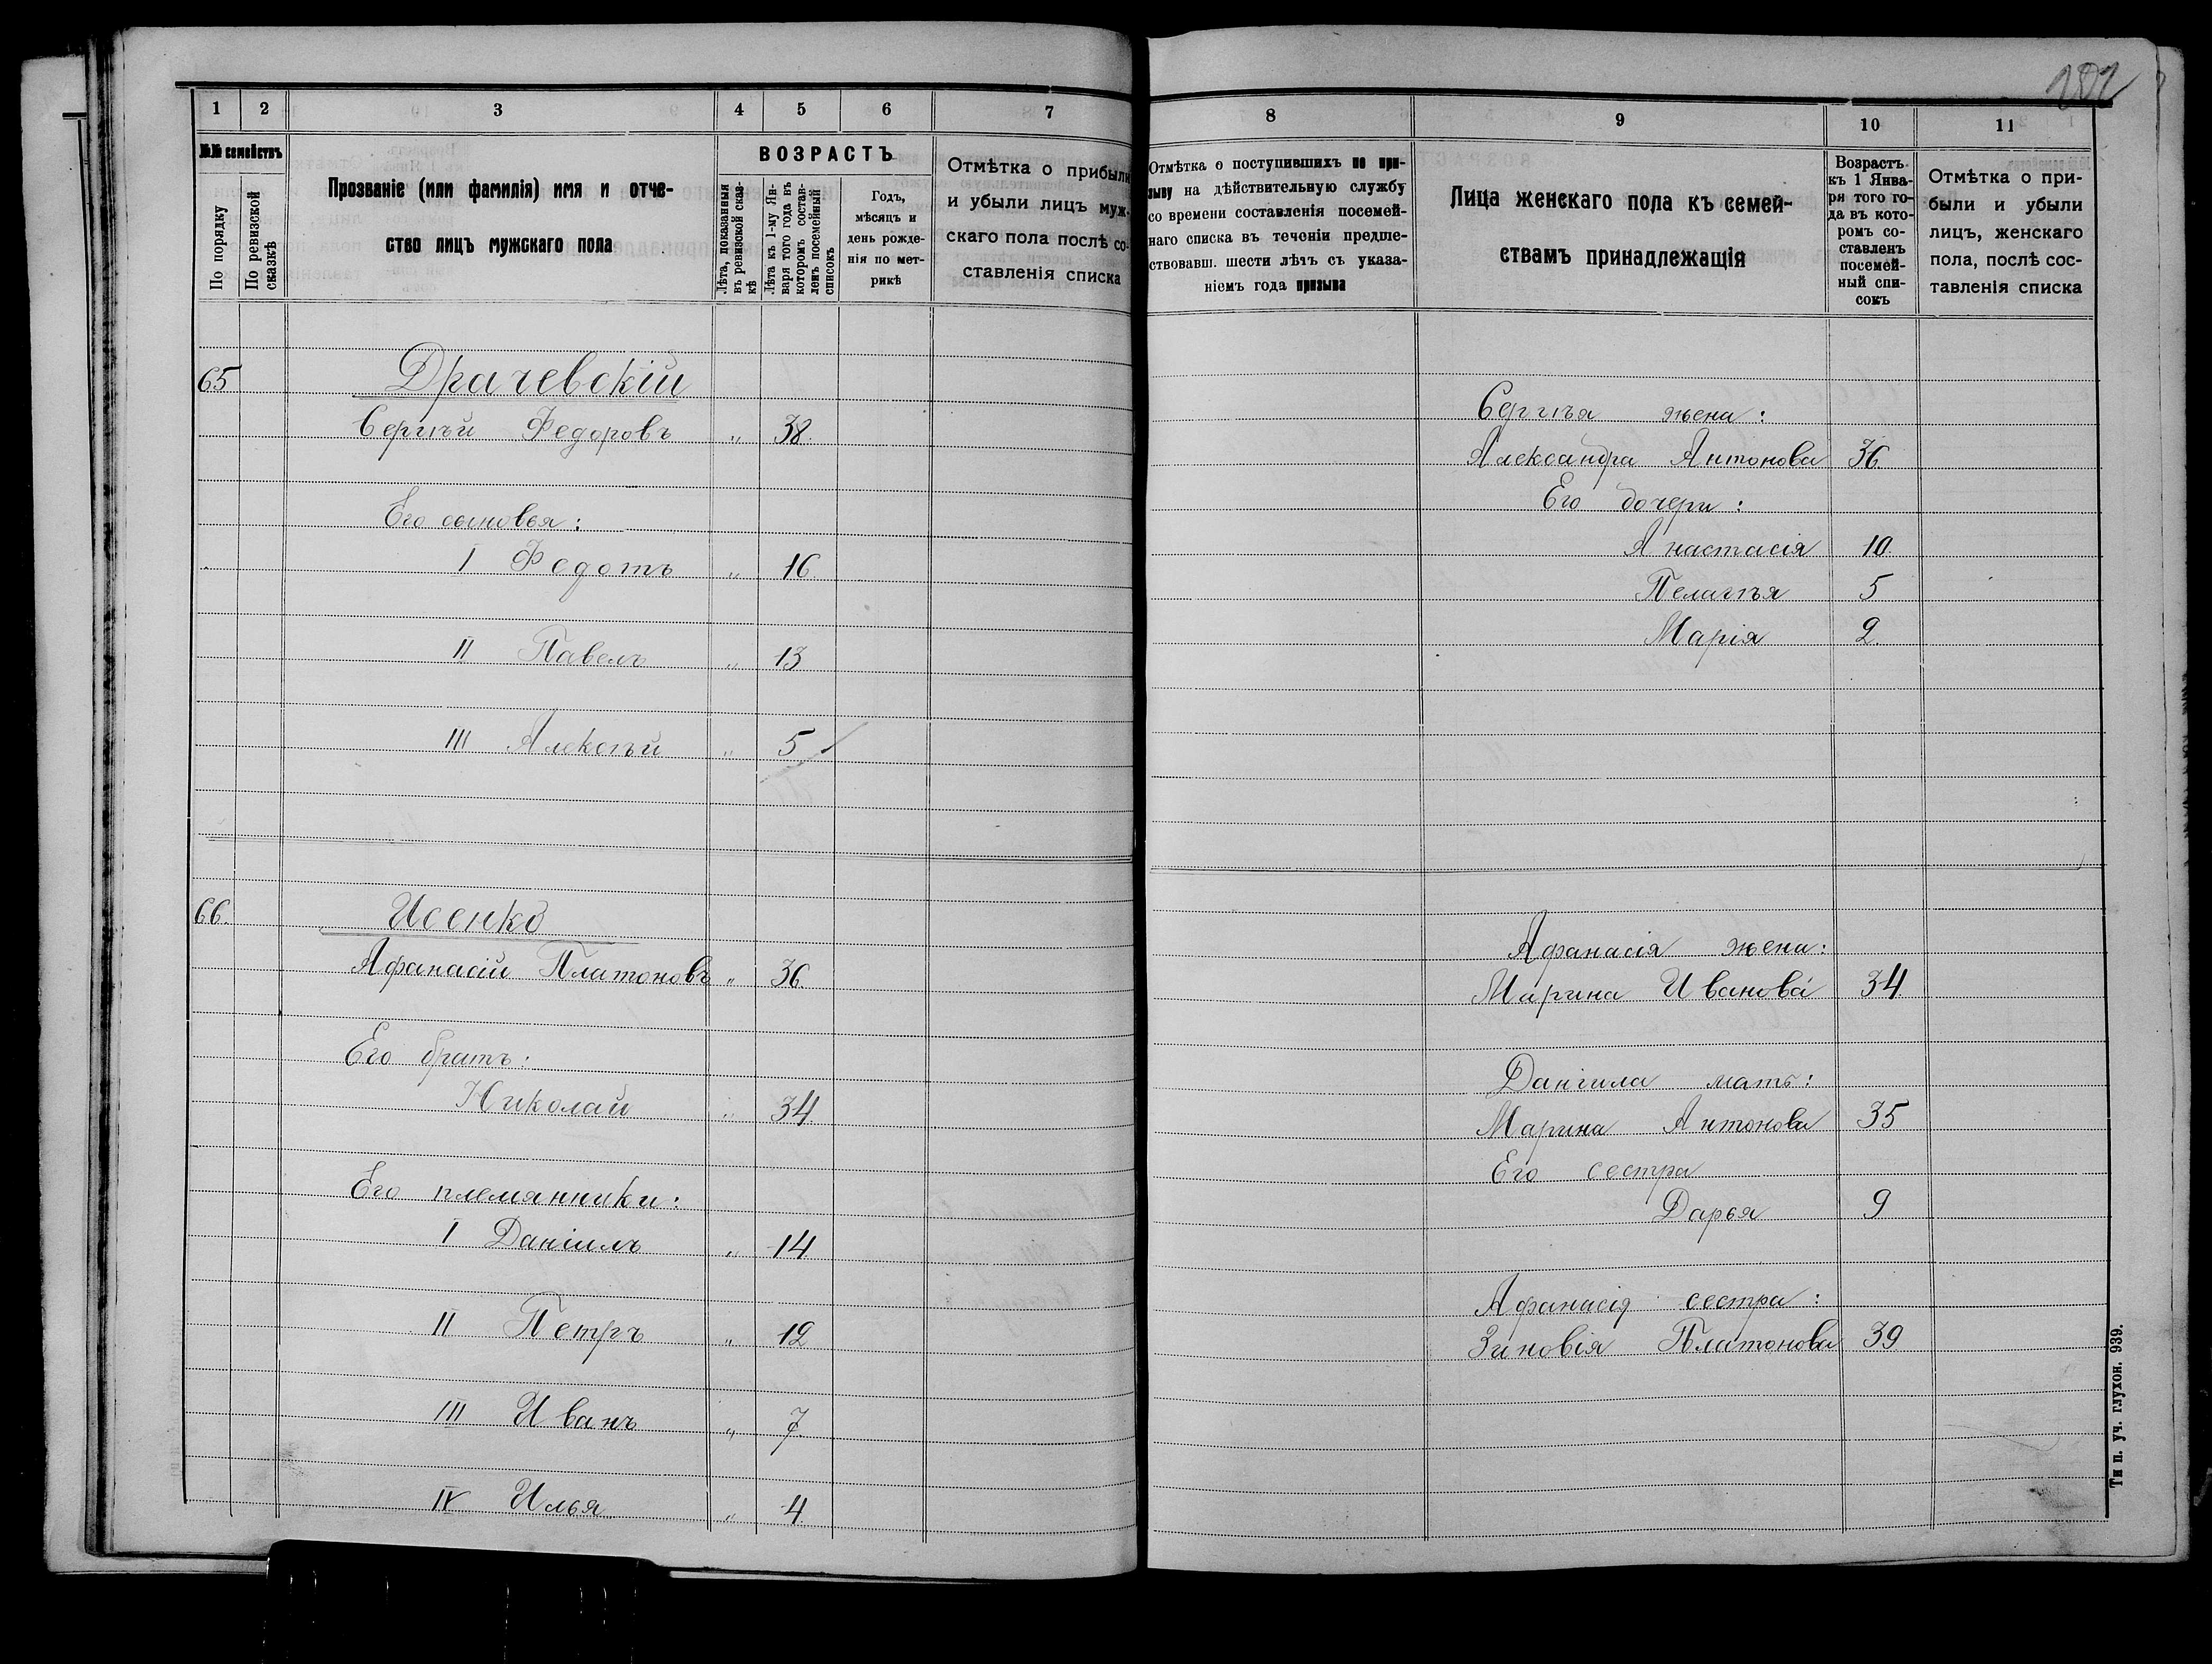 202
1 2 3 4 5 6 7
№№ семействъ
По порядку
По ревизской сказкѣ
Прозваніе (или фамилія) имя и отче-
ство лицъ мужскаго пола
ВОЗРАСТЪ
Лѣта, показанныя
въ ревизской сказ-
кѣ
Лѣта къ 1-му Ян-
варя того года въ
которомъ состав-
ленъ посемейный
списокъ
Годъ,
мѣсяцъ и
день рожде-
нія по мет-
рикѣ
Отмѣтка о прибыли
и убыли лицъ муж-
скаго пола послѣ со-
ставленія списка
65 Драчевскій
Сергѣй Федоровъ „ 38.
Его сыновья:
I Федотъ „ 16.
II Павелъ „ 13
III Алексѣй „ 5
66. Исенко
Афанасій Платоновъ „ 36
Его братъ:
Николай „ 34
Его племянники:
I Даніилъ „ 14
II Петръ „ 12
III Иванъ „ 7
IV Илья „ 4
8 9 10 11
Отмѣтка о поступившихъ по при-
зыву на дѣйствительную службу
со времени составленія посемей-
наго списка въ теченіи предше-
ствовавш. шести лѣтъ съ указа-
ніемъ года призыва
Лица женскаго пола къ семей-
ствамъ принадлежащія
Возрастъ
къ 1 Янва-
ря того го-
да въ кото-
ромъ со-
ставленъ
посемей-
ный спи-
сокъ
Отмѣтка о при-
были и убыли
лицъ, женскаго
пола, послѣ сос-
тавленія списка
Сергѣя жена:
Александра Антонова 36
Его дочери:
Анастасія 10.
Пелагѣя 5
Марія 2.
Афанасія жена:
Марина Иванова 34
Даніила мать:
Марина Антонова 35
Его сестра
Дарья 9
Афанасія сестра:
Зиновія Платонова 39
Тип. уч. глухон. 939.